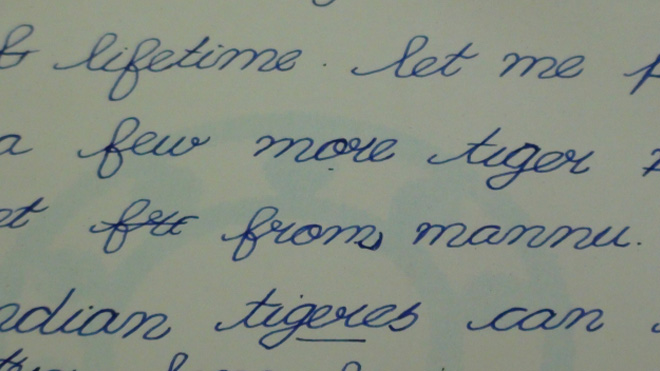 lifetime. let me
a few more tiger
from, mannu.
ndian tigeres can